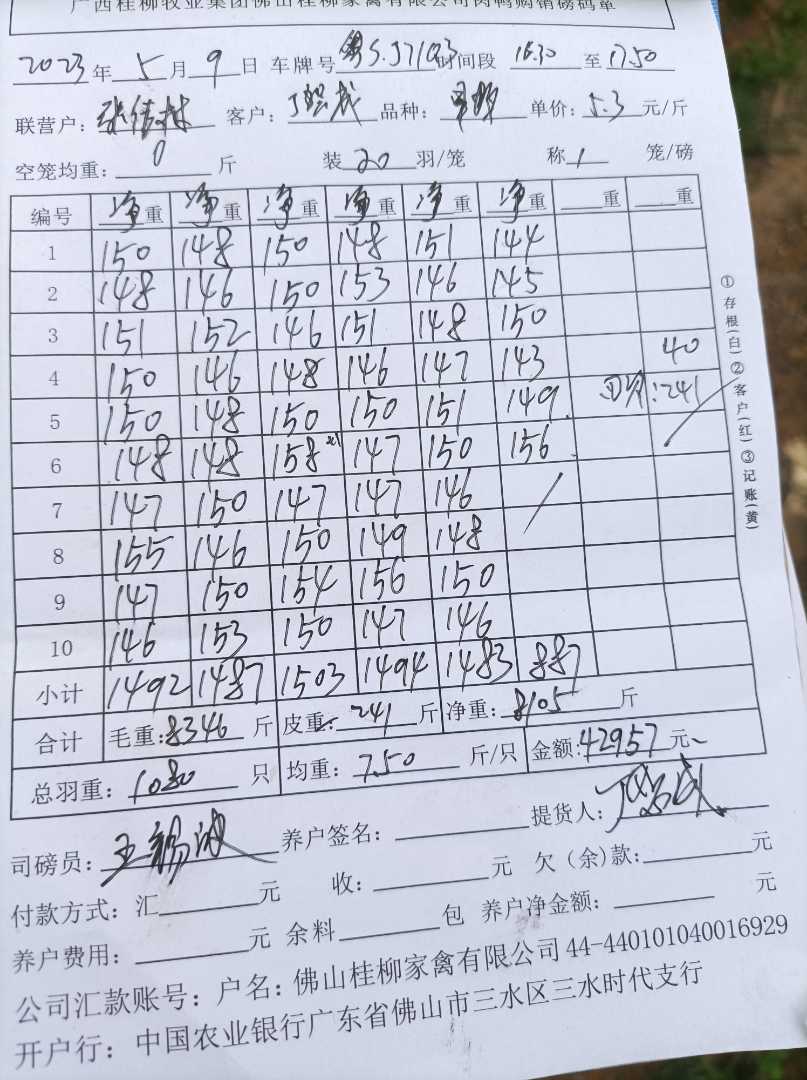 广西桂柳牧业集团佛山桂柳家禽有限公司肉鸭购销磅码单
2023年5月9日 车牌号粤S.J7103时间段 16:30至17.50
联营户: 客户: 品种: 单价:5.3元/斤
空笼均重:0斤 装20羽/笼 称1笼/磅
编号 净重 净重 净重 净重 净重 净重 重 重
1 150 148 150 148 151 144
2 148 146 150 153 146 145
3 151 152 146 151 148 150
4 150 146 148 146 147 143 40
5 150 148 150 150 151 149 :241
6 148 148 158 147 150 156
7 147 150 147 147 146
8 155 146 150 149 148
9 147 150 154 156 150
10 146 153 150 147 146
小计 1492 1487 1503 1494 1483 887
合计 毛重:8346斤 皮重:241斤 净重:8105斤
总羽重:1080只 均重:7.50斤/只 金额:42957元
司磅员: 养户签名: 提货人:
付款方式:汇 元 收: 元 欠(余)款: 元
养户费用: 元 余料 包 养户净金额: 元
公司汇款账号:户名:佛山桂柳家禽有限公司 44-440101040016929
开户行:中国农业银行广东省佛山市三水区三水时代支行
①存根(白)②客户(红)③记账(黄)